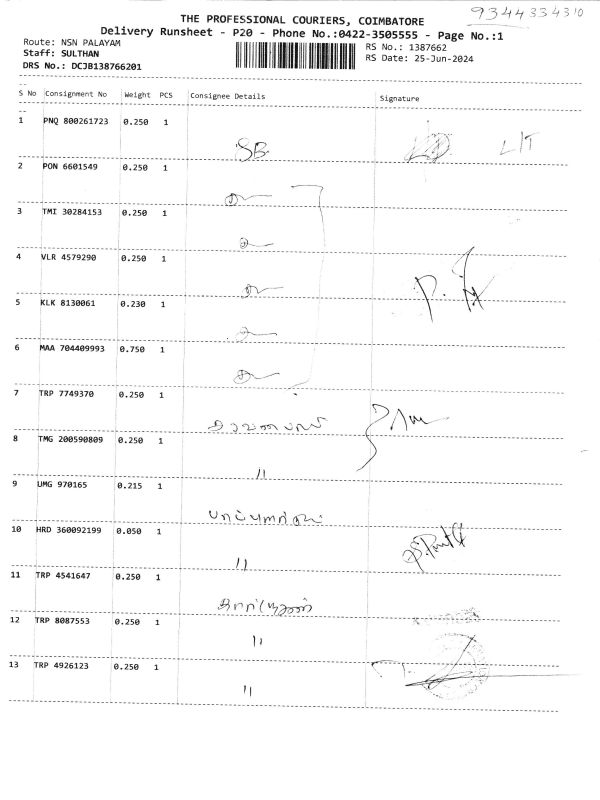 9344334310
THE PROFESSIONAL COURIERS, COIMBATORE
Delivery Runsheet - P20 - Phone No.:0422-3505555 - Page No.:1
Route: NSN PALAYAM
Staff: SULTHAN
DRS No.: DCJB138766201
RS No.: 1387662
RS Date: 25-Jun-2024
S No Consignment No Weight PCS Consignee Details Signature
1 PNQ 800261723 0.250 1
SB L/T
2 PON 6601549 0.250 1
3 TMI 30284153 0.250 1
4 VLR 4579290 0.250 1
5 KLK 8130061 0.230 1
6 MAA 704409993 0.750 1
7 TRP 7749370 0.250 1
8 TMG 200590809 0.250 1
"
9 UMG 970165 0.215 1
10 HRD 360092199 0.050 1
"
11 TRP 4541647 0.250 1
12 TRP 8087553 0.250 1
"
13 TRP 4926123 0.250 1
"